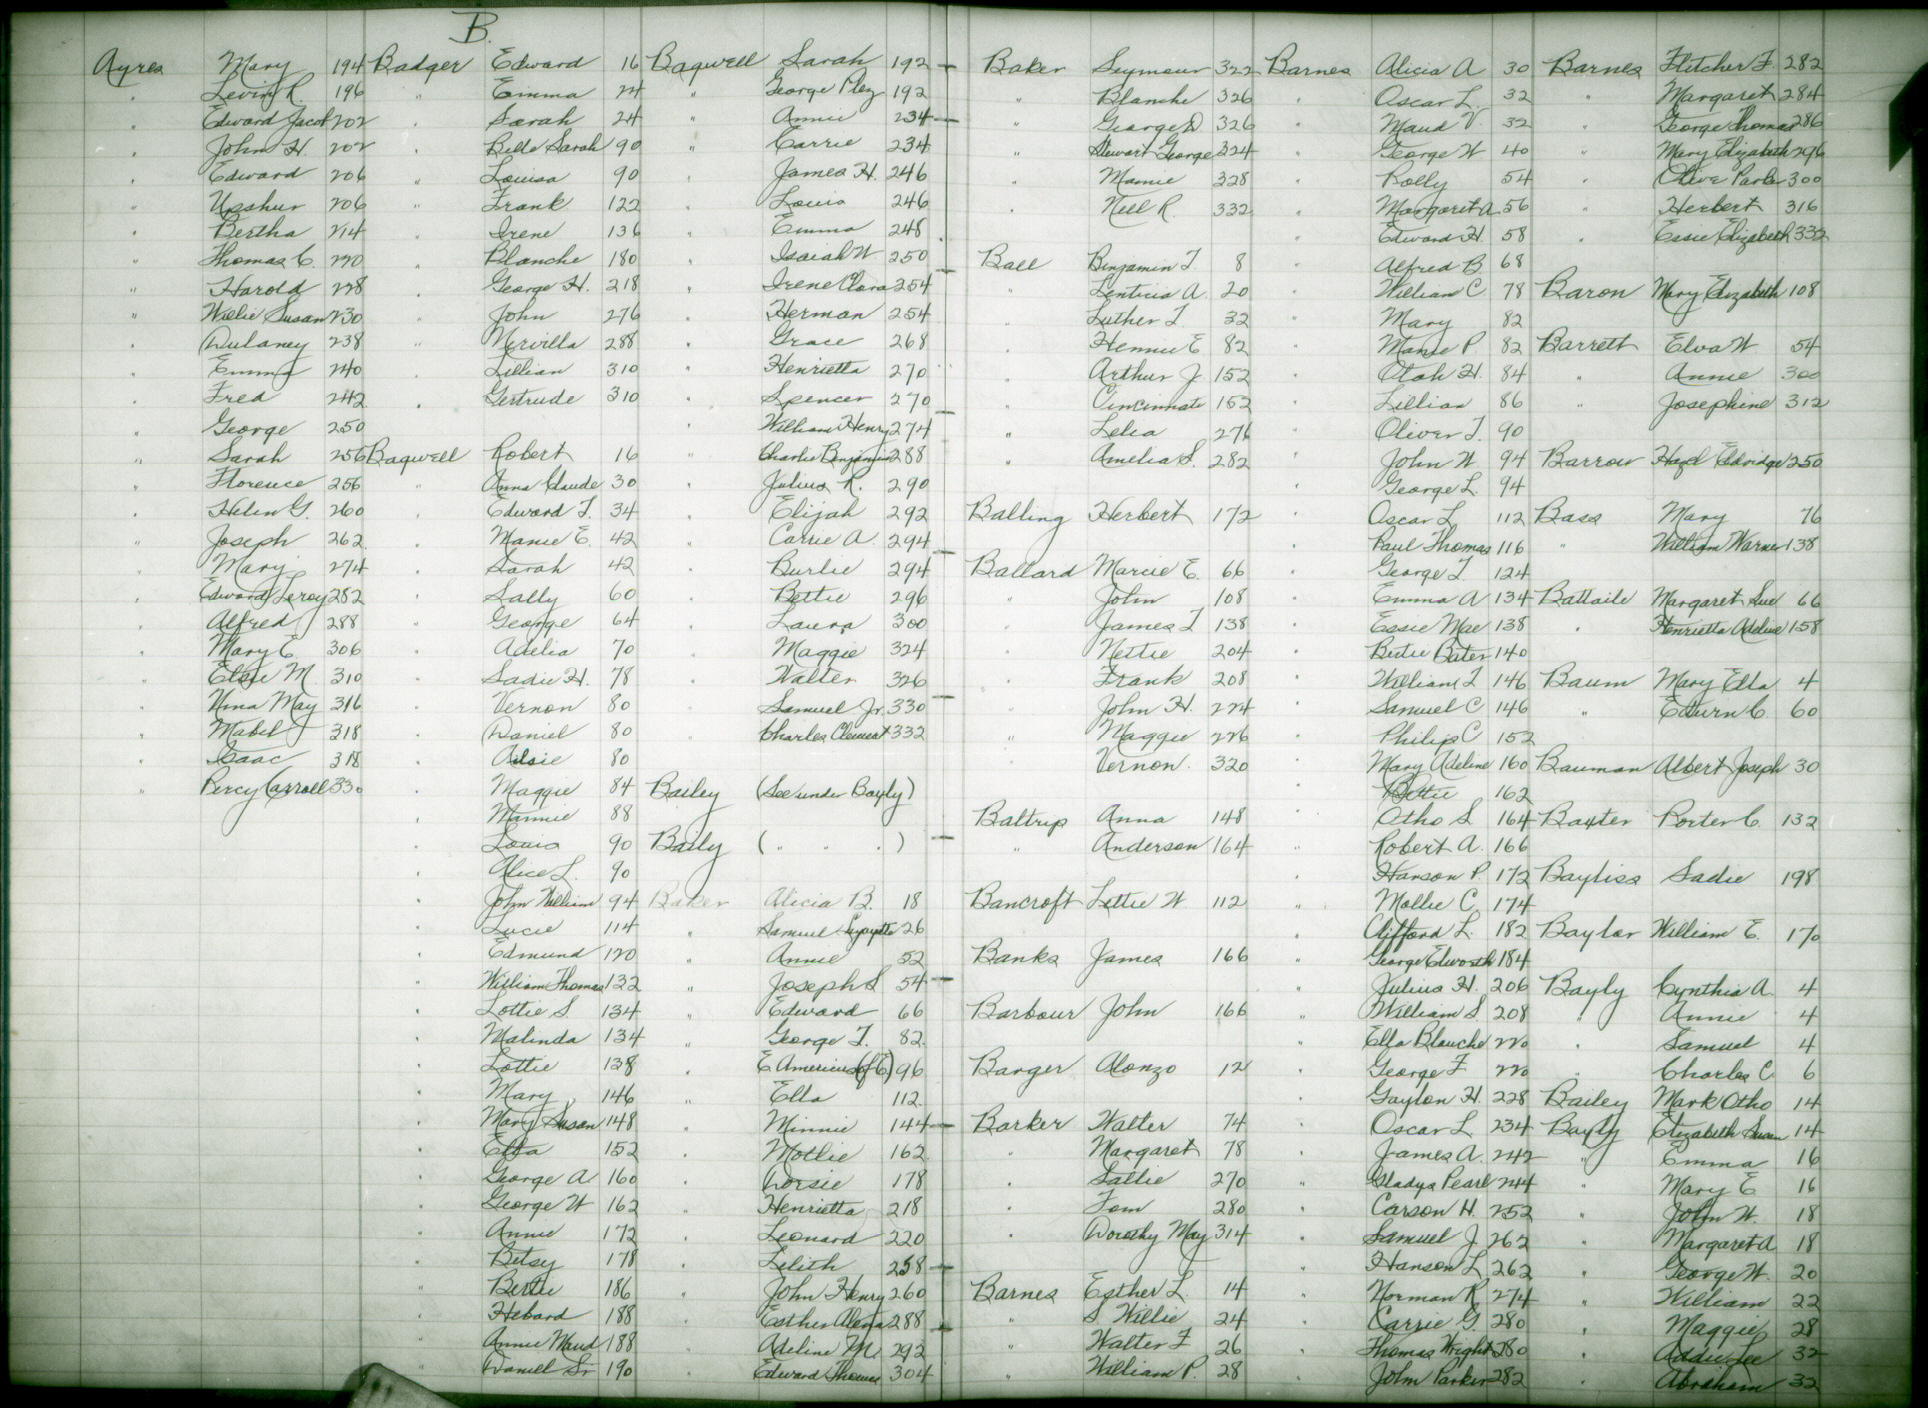 B.
Ayres Mary 194
" Levin R. 196
" Edward Jacob 202
" John H. 202
" Edward 206
" Upshur 206
" Bertha 214
" Thomas C. 220
" Harold 228
" Willie Susan 230
" Dulaney 238
" Emma 240
" Fred 242
" George 250
" Sarah 256
" Florence 256
" Helen G. 260
" Joseph 262
" Mary 274
" Edward Leroy 282
" Alfred 288
" Mary E. 306
" Elsie M. 310
" Nina May 316
" Mabel 318
" Isaac 318
" Percy Carroll 330
Badger Edward 16
" Emma 24
" Sarah 24
" Belle Sarah 90
" Louisa 90
" Frank 122
" Irene 136
" Blanche 180
" George H. 218
" John 276
" Mervilla 288
" Lillian 310
" Gertrude 310
Bagwell Robert 16
" Anna Claude 30
" Edward T. 34
" Manie E. 42
" Sarah 42
" Sally 60
" George 64
" Adelia 70
" Sadie H. 78
" Vernon 80
" Daniel 80
" Ailsie 80
" Maggie 84
" Mannie 88
" Louis 90
" Alice L. 90
" John William 94
" Lucie 114
" Edmund 120
" William Thomas 132
" Lottie S 134
" Malinda 134
" Lottie 138
" Mary 146
" Mary Susan 148
" Etta 152
" George A 160
" George W 162
" Annie 172
" Betsy 178
" Bertie 186
" Hebard 188
" Annie Maud 188
" Daniel Sr. 190
Bagwell Sarah 192
" George Pley 192
" Annie 234
" Carrie 234
" James H. 246
" Louis 246
" Emma 248
" Isaiah W. 250
" Irene Clara 254
" Herman 254
" Grace 268
" Henrietta 270
" Spencer 270
" William Henry 274
" Charlie Benjamin 288
" Julius R. 290
" Elijah 292
" Carrie A. 294
" Burlie 294
" Bettie 296
" Laura 300
" Maggie 324
" Walter 326
" Samuel Jr. 330
" Charles Clement 332
Bailey (See under Bayly)
Baily ( " " " )
Baker Alicia B. 18
" Samuel Lafayette 26
" Annie 52
" Joseph S 54
" Edward 66
" George T. 82
" E Americus (of E) 96
" Ella 112
" Minnie 144
" Mollie 162
" Dorsie 178
" Henrietta 218
" Leonard 220
" Lilith 258
" John Henry 260
" Esther Alena 288
" Adeline M. 292
" Edward Thomas 304
Baker Seymour 322
" Blanche 326
" George D 326
" Stewart George 324
" Mamie 328
" Nell R. 332
Ball Benjamin T. 8
" Lenticia A. 20
" Luther T. 32
" Hennie E 82
" Arthur J. 152
" Cincinnati 152
" Lelia 276
" Amelia S. 282
Balling Herbert 172
Ballard Marcie E. 66
" John 108
" James T 138
" Nettie 204
" Frank 208
" John H. 224
" Maggie 226
" Vernon. 320
Baltrip Anna 148
" Anderson 164
Bancroft Lettie W. 112
Banks James 166
Barbour John 166
Barger Alonzo 12
Barker Walter 74
" Margaret 78
" Sallie 270
" Tom 280
" Dorothy May 314
Barnes Esther L. 14
" S Willie 24
" Walter F 26
" William P. 28
Barnes Alicia A 30
" Oscar L. 32
" Maud V. 32
" George W 40
" Rolly 54
" Margaret A 56
" Edward H. 58
" Alfred B 68
" William C 78
" Mary 82
" Manie P. 82
" Otah H. 84
" Lillian 86
" Oliver T. 90
" John W. 94
" George L. 94
" Oscar L 112
" Paul Thomas 116
" George T 124
" Emma A 134
" Essie Mae 138
" Bertie Bates 140
" William T 146
" Samuel C 146
" Philip C 152
" Mary Adeline 160
" Bettie 162
" Otho S 164
" Robert A. 166
" Hanson P. 172
" Mollie C. 174
" Clifford L. 182
" George Elworth 184
" Julius H. 206
" William S 208
" Ella Blanche 220
" George F 220
" Gaylon H. 228
" Oscar L 234
" James A. 242
" Gladys Pearl 244
" Carson H. 252
" Samuel J. 262
" Hanson L 262
" Norman R 274
" Carrie G 280
" Thomas Wright 280
" John Parker 282
Barnes Fletcher F. 282
" Margaret 284
" George Thomas 286
" Mary Elizabeth 296
" Olive Parker 300
" Herbert 316
" Essie Elizabeth 332
Baron Mary Elizabeth 108
Barrett Elva W 54
" Annie 300
" Josephine 312
Barrow Hazel Eldridge 250
Bass Mary 76
" William Warner 138
Battaile Margaret Sue 66
" Henrietta Adeline 158
Baum Mary Etta 4
" Edwrn C. 60
Bauman Albert Joseph 30
Baxter Porter C. 132
Bayliss Sadie 198
Baylor William E. 170
Bayly Cynthia A. 4
" Annie 4
" Samuel 4
" Charles C. 6
Bailey Mark Otho 14
Bayly Elizabeth Susan 14
" Emma 16
" Mary E 16
" John W. 18
" Margaret A 18
" George W. 20
" William 22
" Maggie 28
" Addie Lee 32
" Abraham 32